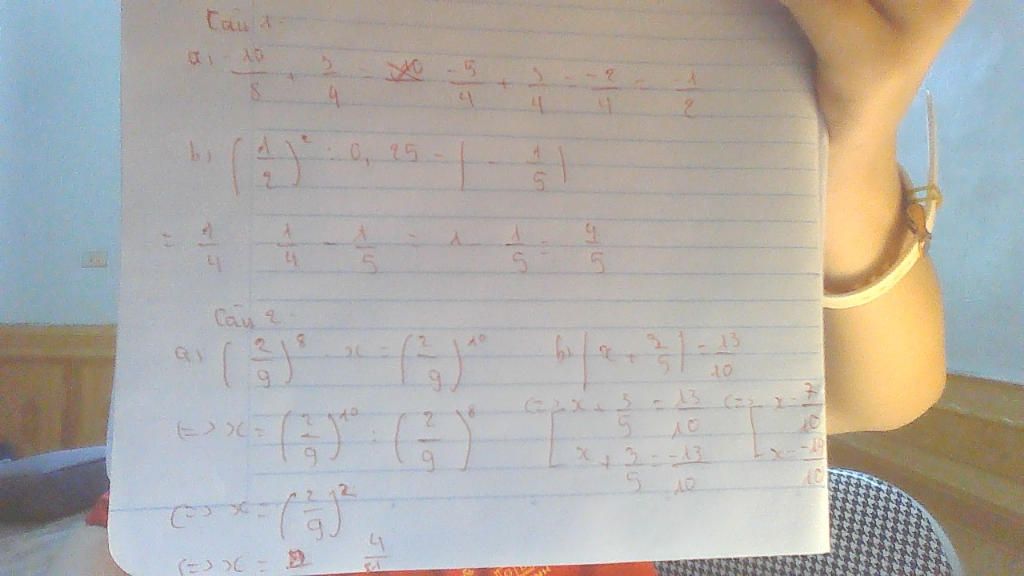 Câu 1:
a, -10/8 + 3/4 = -5/4 + 3/4 = -2/4 = -1/2
b, (1/2)² : 0,25 - |-1/5|
= 1/4 : 1/4 - 1/5 = 1 - 1/5 = 4/5
Câu 2:
a, (2/9)⁸ · x = (2/9)¹⁰
(=) x = (2/9)¹⁰ : (2/9)⁸
(=) x = (2/9)²
(=) x = 4/81
b, |x + 3/5| = 13/10
(=) [ x + 3/5 = 13/10 (=) [ x = 7/10
x + 3/5 = -13/10 x = -19/10